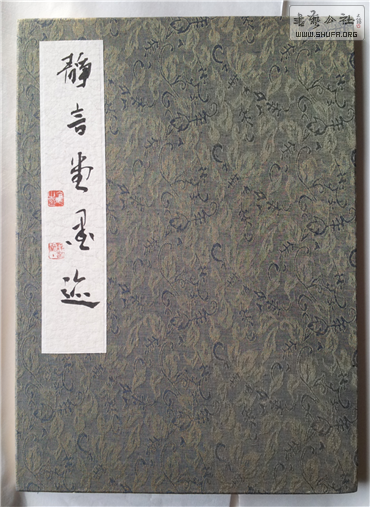 静音堂墨迹
書法公社
WWW.SHUFA.ORG